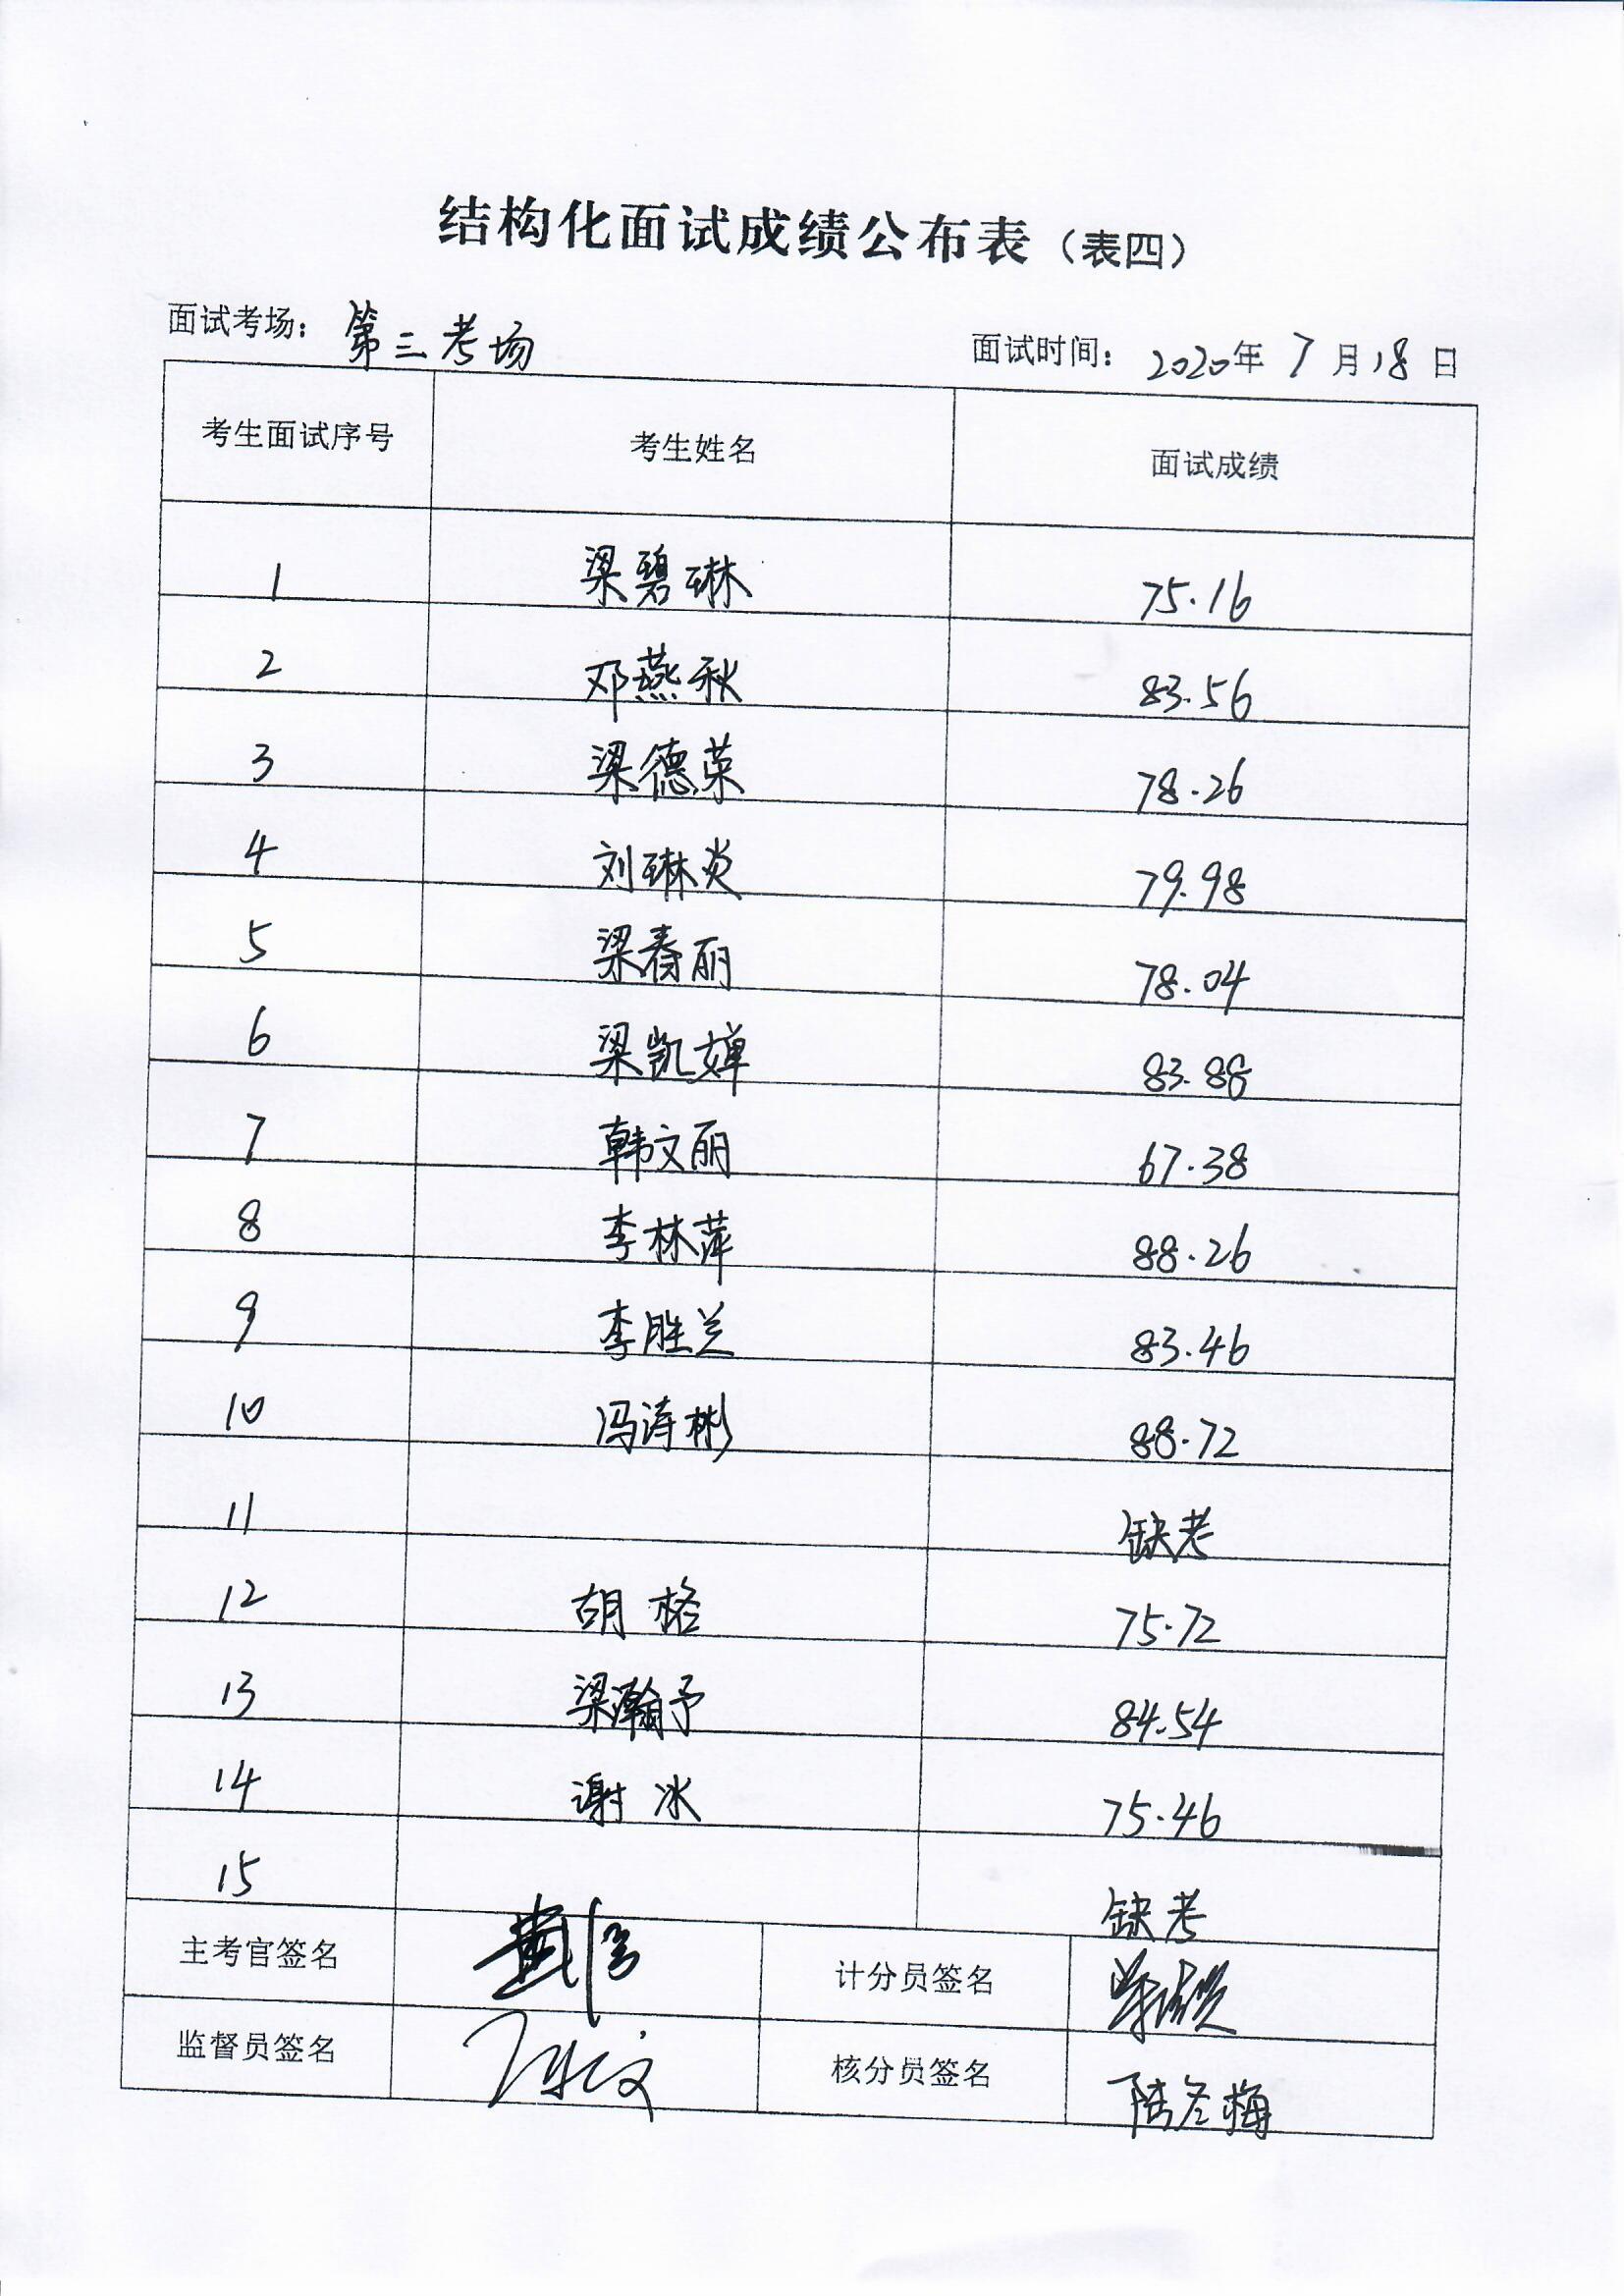 结构化面试成绩公布表（表四）
面试考场：第三考场 面试时间：2020年7月18日
考生面试序号 考生姓名 面试成绩
1 梁碧琳 75.16
2 邓燕秋 83.56
3 梁德荣 78.26
4 刘琳炎 79.98
5 梁春丽 78.04
6 梁凯婵 83.88
7 韩文丽 67.38
8 李林萍 88.26
9 李胜兰 83.46
10 冯涛彬 88.72
11 缺考
12 胡格 75.72
13 梁瀚予 84.54
14 谢冰 75.46
15 缺考
主考官签名 计分员签名
监督员签名 核分员签名 陆冬梅